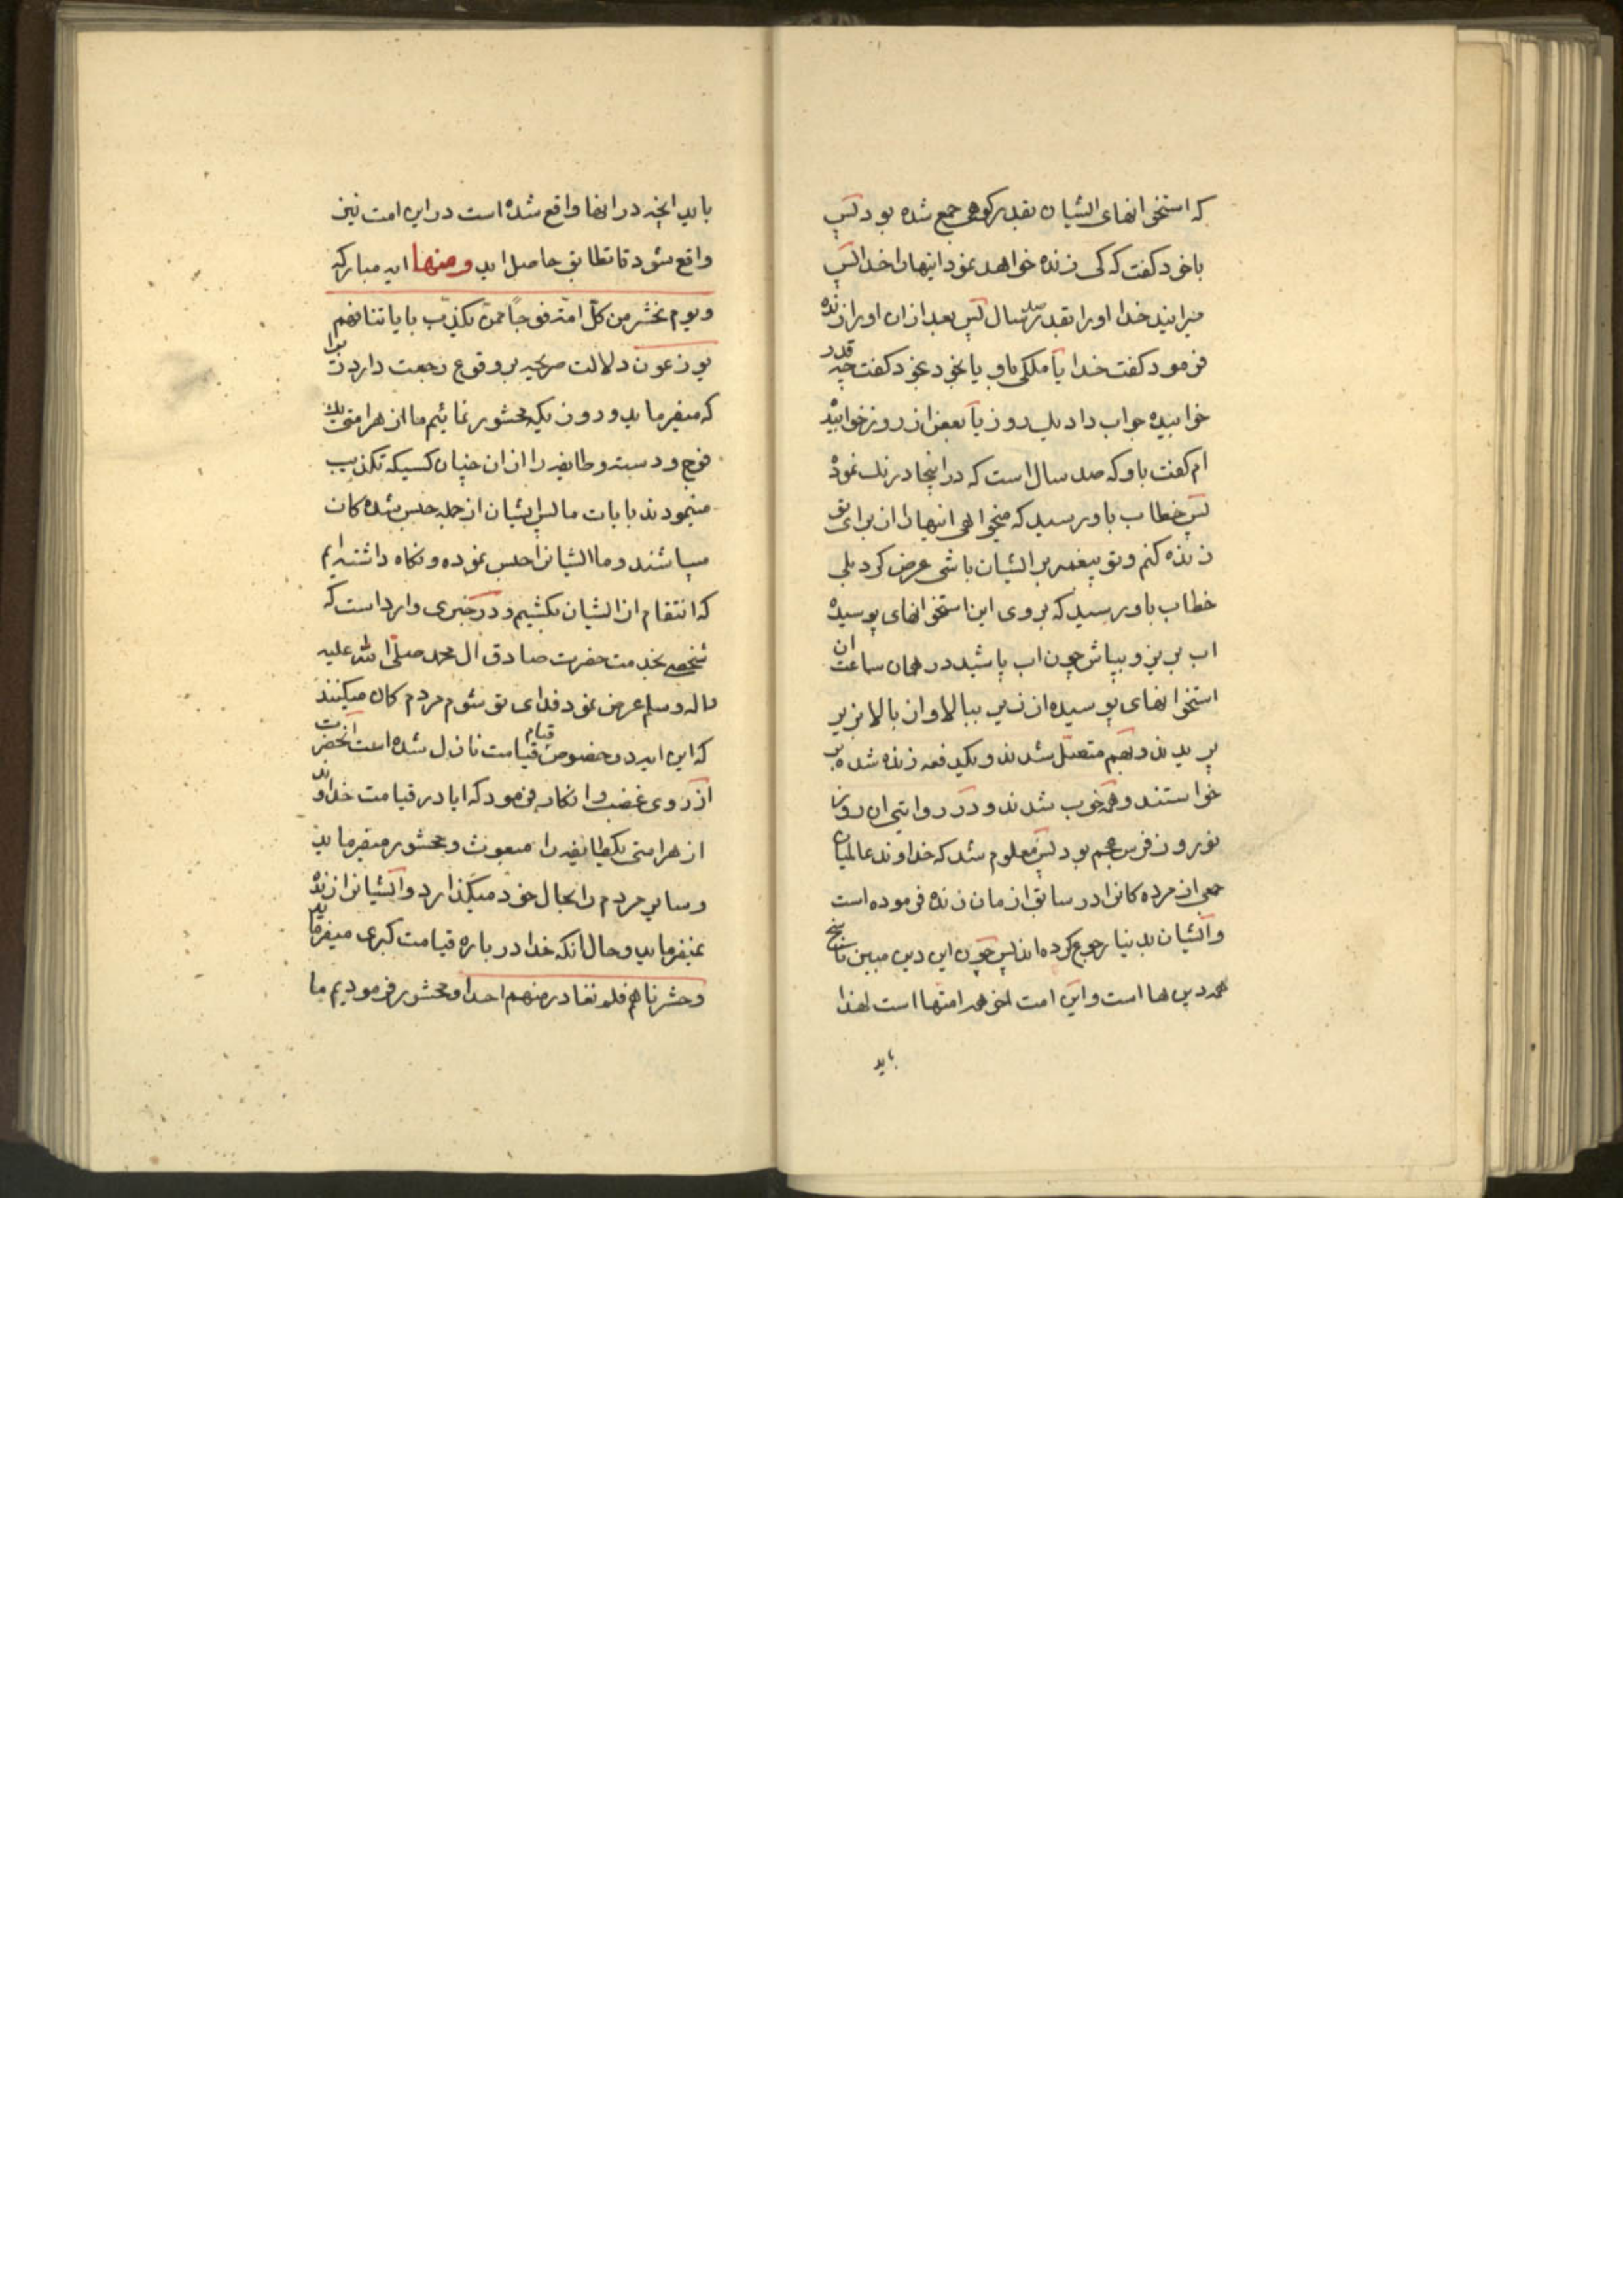 که استخوانهای ایشان بقدر کوهی جمع شده بود پس
باخود کفت که کی زنده خواهد نمود اینهارا خدا پس
میرانید خدا اورا بقدر صد سال پس بعد ازان اورا زنده
فرمود کفت خدا یا ملکی باو یا بخود بخود کفت چه قدر
خوابیده جواب داد یک روز یا بعض از روز خوابیده
ام کفت باو که صد سال است که در اینجا درنک نموده
پس خطاب باو رسید که میخواهی اینهارا از برای تو
زنده کنم و تو پیغمبر بر ایشان باشی عرض کرد بلی
خطاب باو رسید که بروی این استخوانهای پوسیده
اب بریز و بپاش چون اب پاشید در همان ساعت ان
استخوانهای پوسیده از زیر ببالا و از بالا بزیر
پریدند و بهم متصل شدند و بکیدفعه زنده شده بر
خواستند و همه خوب شدند و در روایتی ان روز
نوروز فرس عجم بود پس معلوم شد که خداوند عالمیان
جمعی از مرده کانرا در سابق از مان زنده فرموده است
و ایشان بدنیا رجوع کرده اند پس چون این دین مبین ناسخ
همه دین ها است و این امت اخر همه امتها است لهذا
باید
باید انچه در انها واقع شده است در این امت نیز
واقع شود تا تطابق حاصل اید ومنها ایه مبارکه
ویوم نحشر من کل امة فوجاً ممن یکذب بایاتنا فهم
یوزعون دلالت صریحه بر وقوع رجعت دارد زیرا
که میفرماید و روزیکه محشور نمائیم ما از هر امتی یک
فوج و دسته و طایفه را از ان چنان کسیکه تکذیب
مینمودند بایات ما پس ایشان از جمله حبس شده کان
میباشند و ما ایشانرا حبس نموده و نکاه داشته ایم
که انتقام از ایشان بکشیم و در خبری وارد است که
شخصی بخدمت حضرت صادق ال محمد صلی الله علیه
واله وسلم عرض نمود فدای تو شوم مردم کان میکنند
که این ایه در خصوص قیام قیامت نازل شده است انحضرت
از روی غضب و انکار فرمود که ایا در قیامت خداوند
از هر امتی یکطایفه را مبعوث و محشور میفرماید
و سایر مردم را بحال خود میکذارد و ایشانرا زنده
نمیفرماید و حال انکه خدا در باره قیامت کبری میفرماید
وحشرناهم فلم نغادر منهم احدا و محشور فرمودیم ما